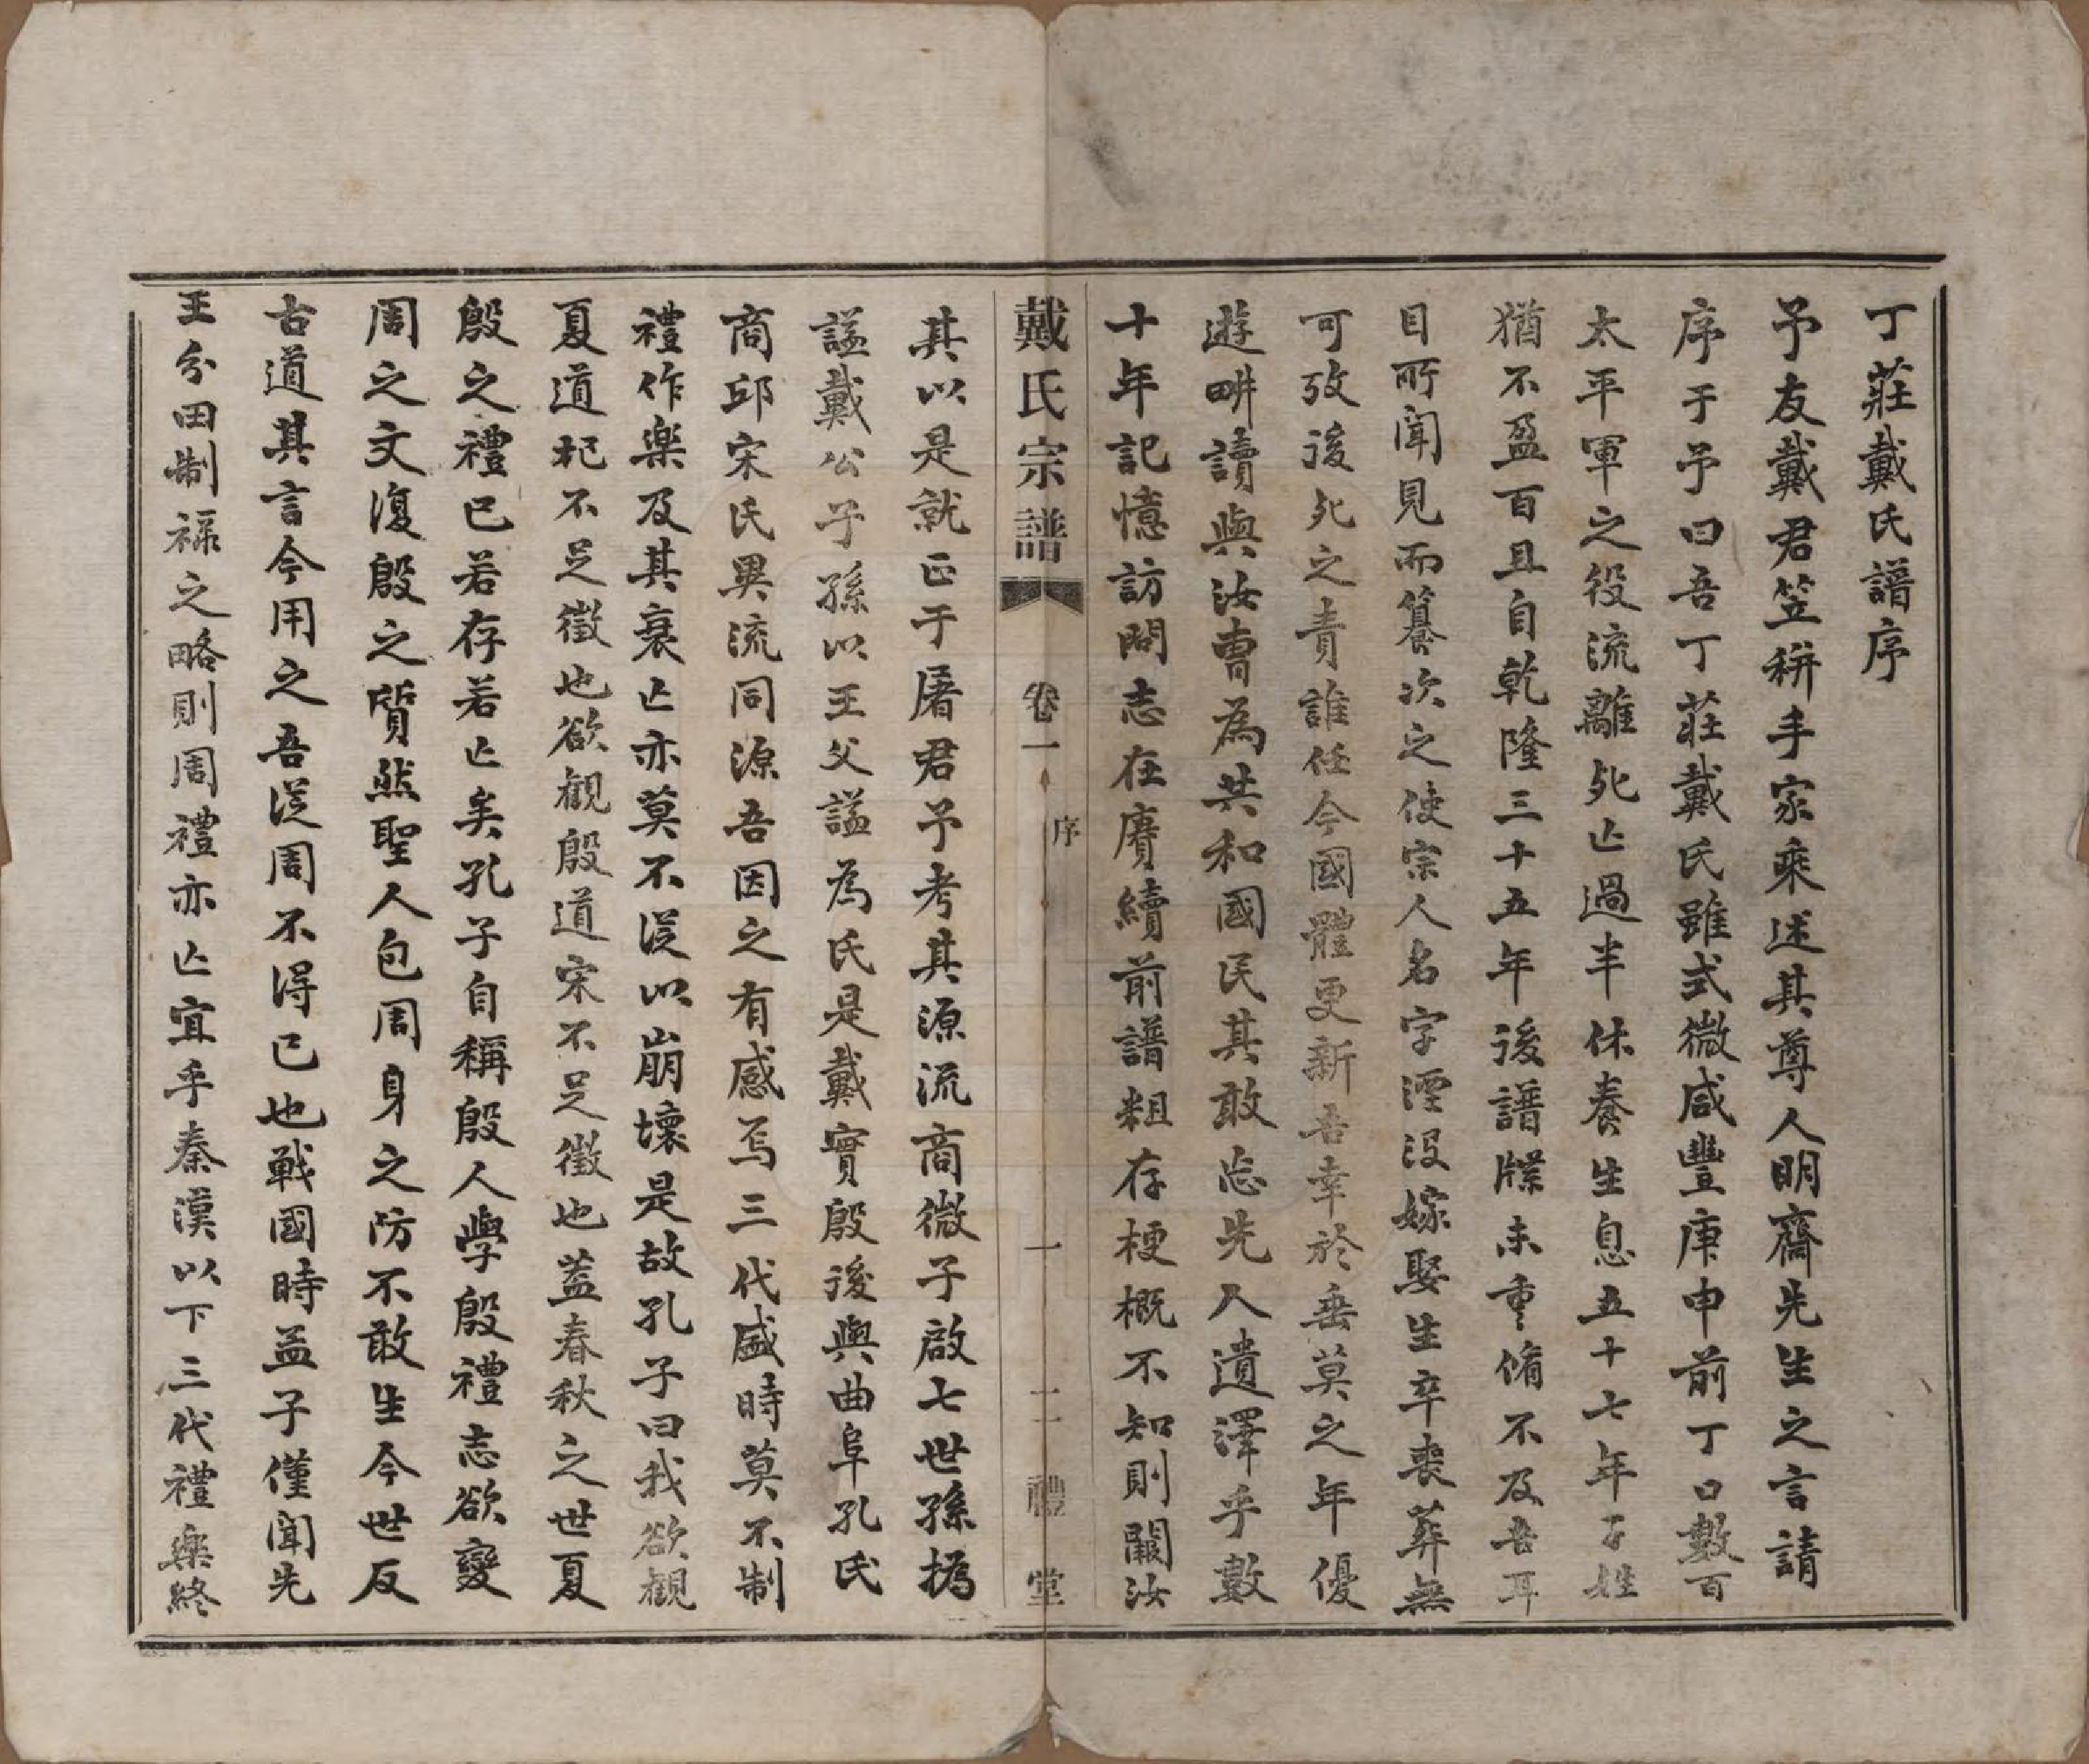 丁莊戴氏譜序
予友戴君笠耕手家乘述其尊人明齋先生之言請
序于予曰吾丁莊戴氏雖式微咸豐庚申前丁口數百
太平軍之役流離死亾過半休養生息五十七年子姓
猶不盈百且自乾隆三十五年後譜牒未重脩不及吾耳
目所聞見而纂次之使宗人名字湮沒嫁娶生卒喪葬無
可攷後死之責誰任今國體更新吾幸於垂莫之年優
遊畊讀與汝曹為共和國民其敢忘先人遺澤乎數
十年記憶訪問志在賡續前譜粗存梗概不知則闕汝
戴氏宗譜 卷一 序 一 二禮堂
其以是就正于屠君予考其源流商微子啟七世孫撝
謚戴公子孫以王父謚為氏是戴實殷後與曲阜孔氏
商邱宋氏異流同源吾因之有感焉三代盛時莫不制
禮作樂及其衰亾亦莫不從以崩壞是故孔子曰我欲觀
夏道杞不足徵也欲觀殷道宋不足徵也葢春秋之世夏
殷之禮已若存若亾矣孔子自稱殷人學殷禮志欲變
周之文復殷之質然聖人包周身之防不敢生今世反
古道其言今用之吾從周不得已也戰國時孟子僅聞先
王分田制祿之略則周禮亦亾宜乎秦漢以下三代禮樂終